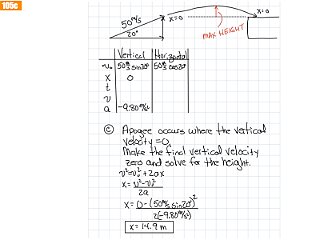 105c
50m/s
20°
x=0
x=0
MAX HEIGHT
Vertical Horizontal
v₀ 50m/s sin20° 50m/s cos20°
x 0
t
v
a -9.80m/s²
© Apogee occurs where the vertical
velocity = 0.
Make the final vertical velocity
zero and solve for the height.
v²=v₀²+2ax
x= v²-v₀²
2a
x= 0-(50m/s sin20°)²
2(-9.80m/s²)
x=14.9 m